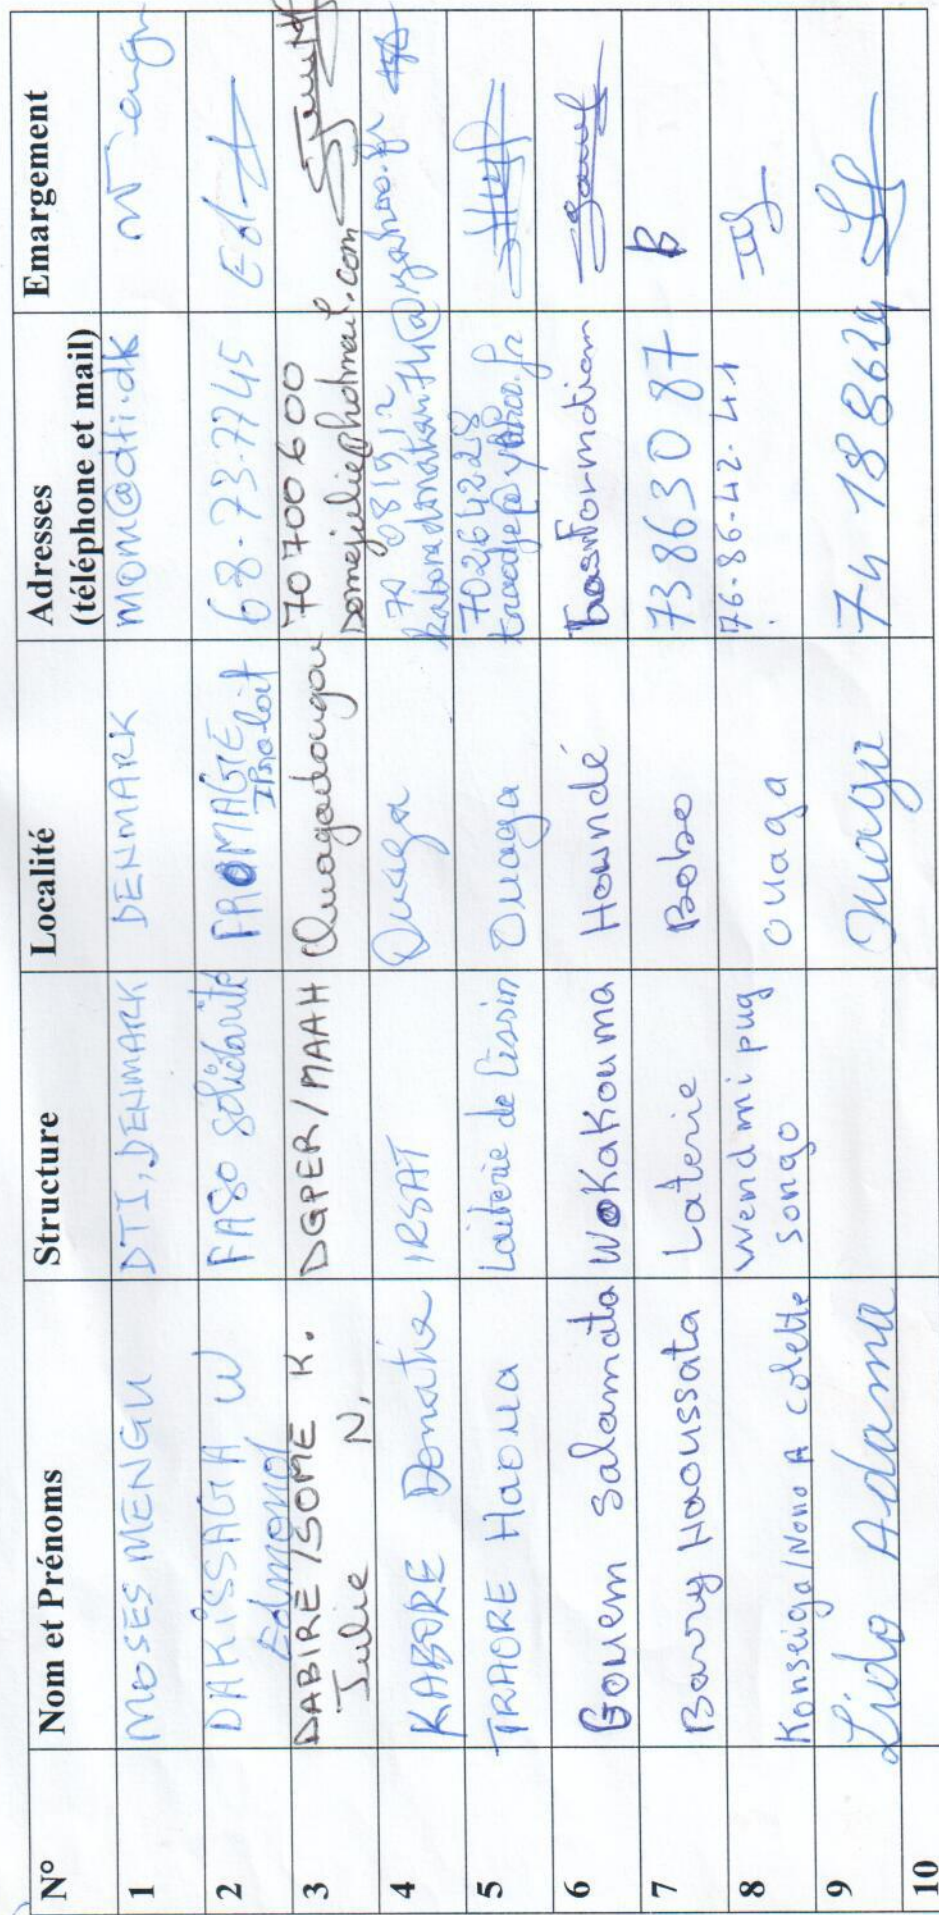 N° Nom et Prénoms Structure Localité Adresses (téléphone et mail) Emargement
1 MOSES MENGU DTI, DENMARK DENMARK mom@dti.dk
2 DAKISSAGA W Edmond FASO Solidarité FROMAGIE 68-73-7745
3 DABIRE/SOME K. Julie N. DGPER/MAAH Ouagadougou 70700600
4 KABORE Donatie IRSAT Ouaga
5 TRAORE Haoua Laiterie de Cissin Ouaga 70264228
6 Gouem Salamata WOKAKOUMA Houndé
7 Barry Haoussata Laterie Bobo 73863087
8 Konseiga/Nono A colette wend mi pug songo ouaga 76-86-42-41
9 Lido Adama Ouaga
10